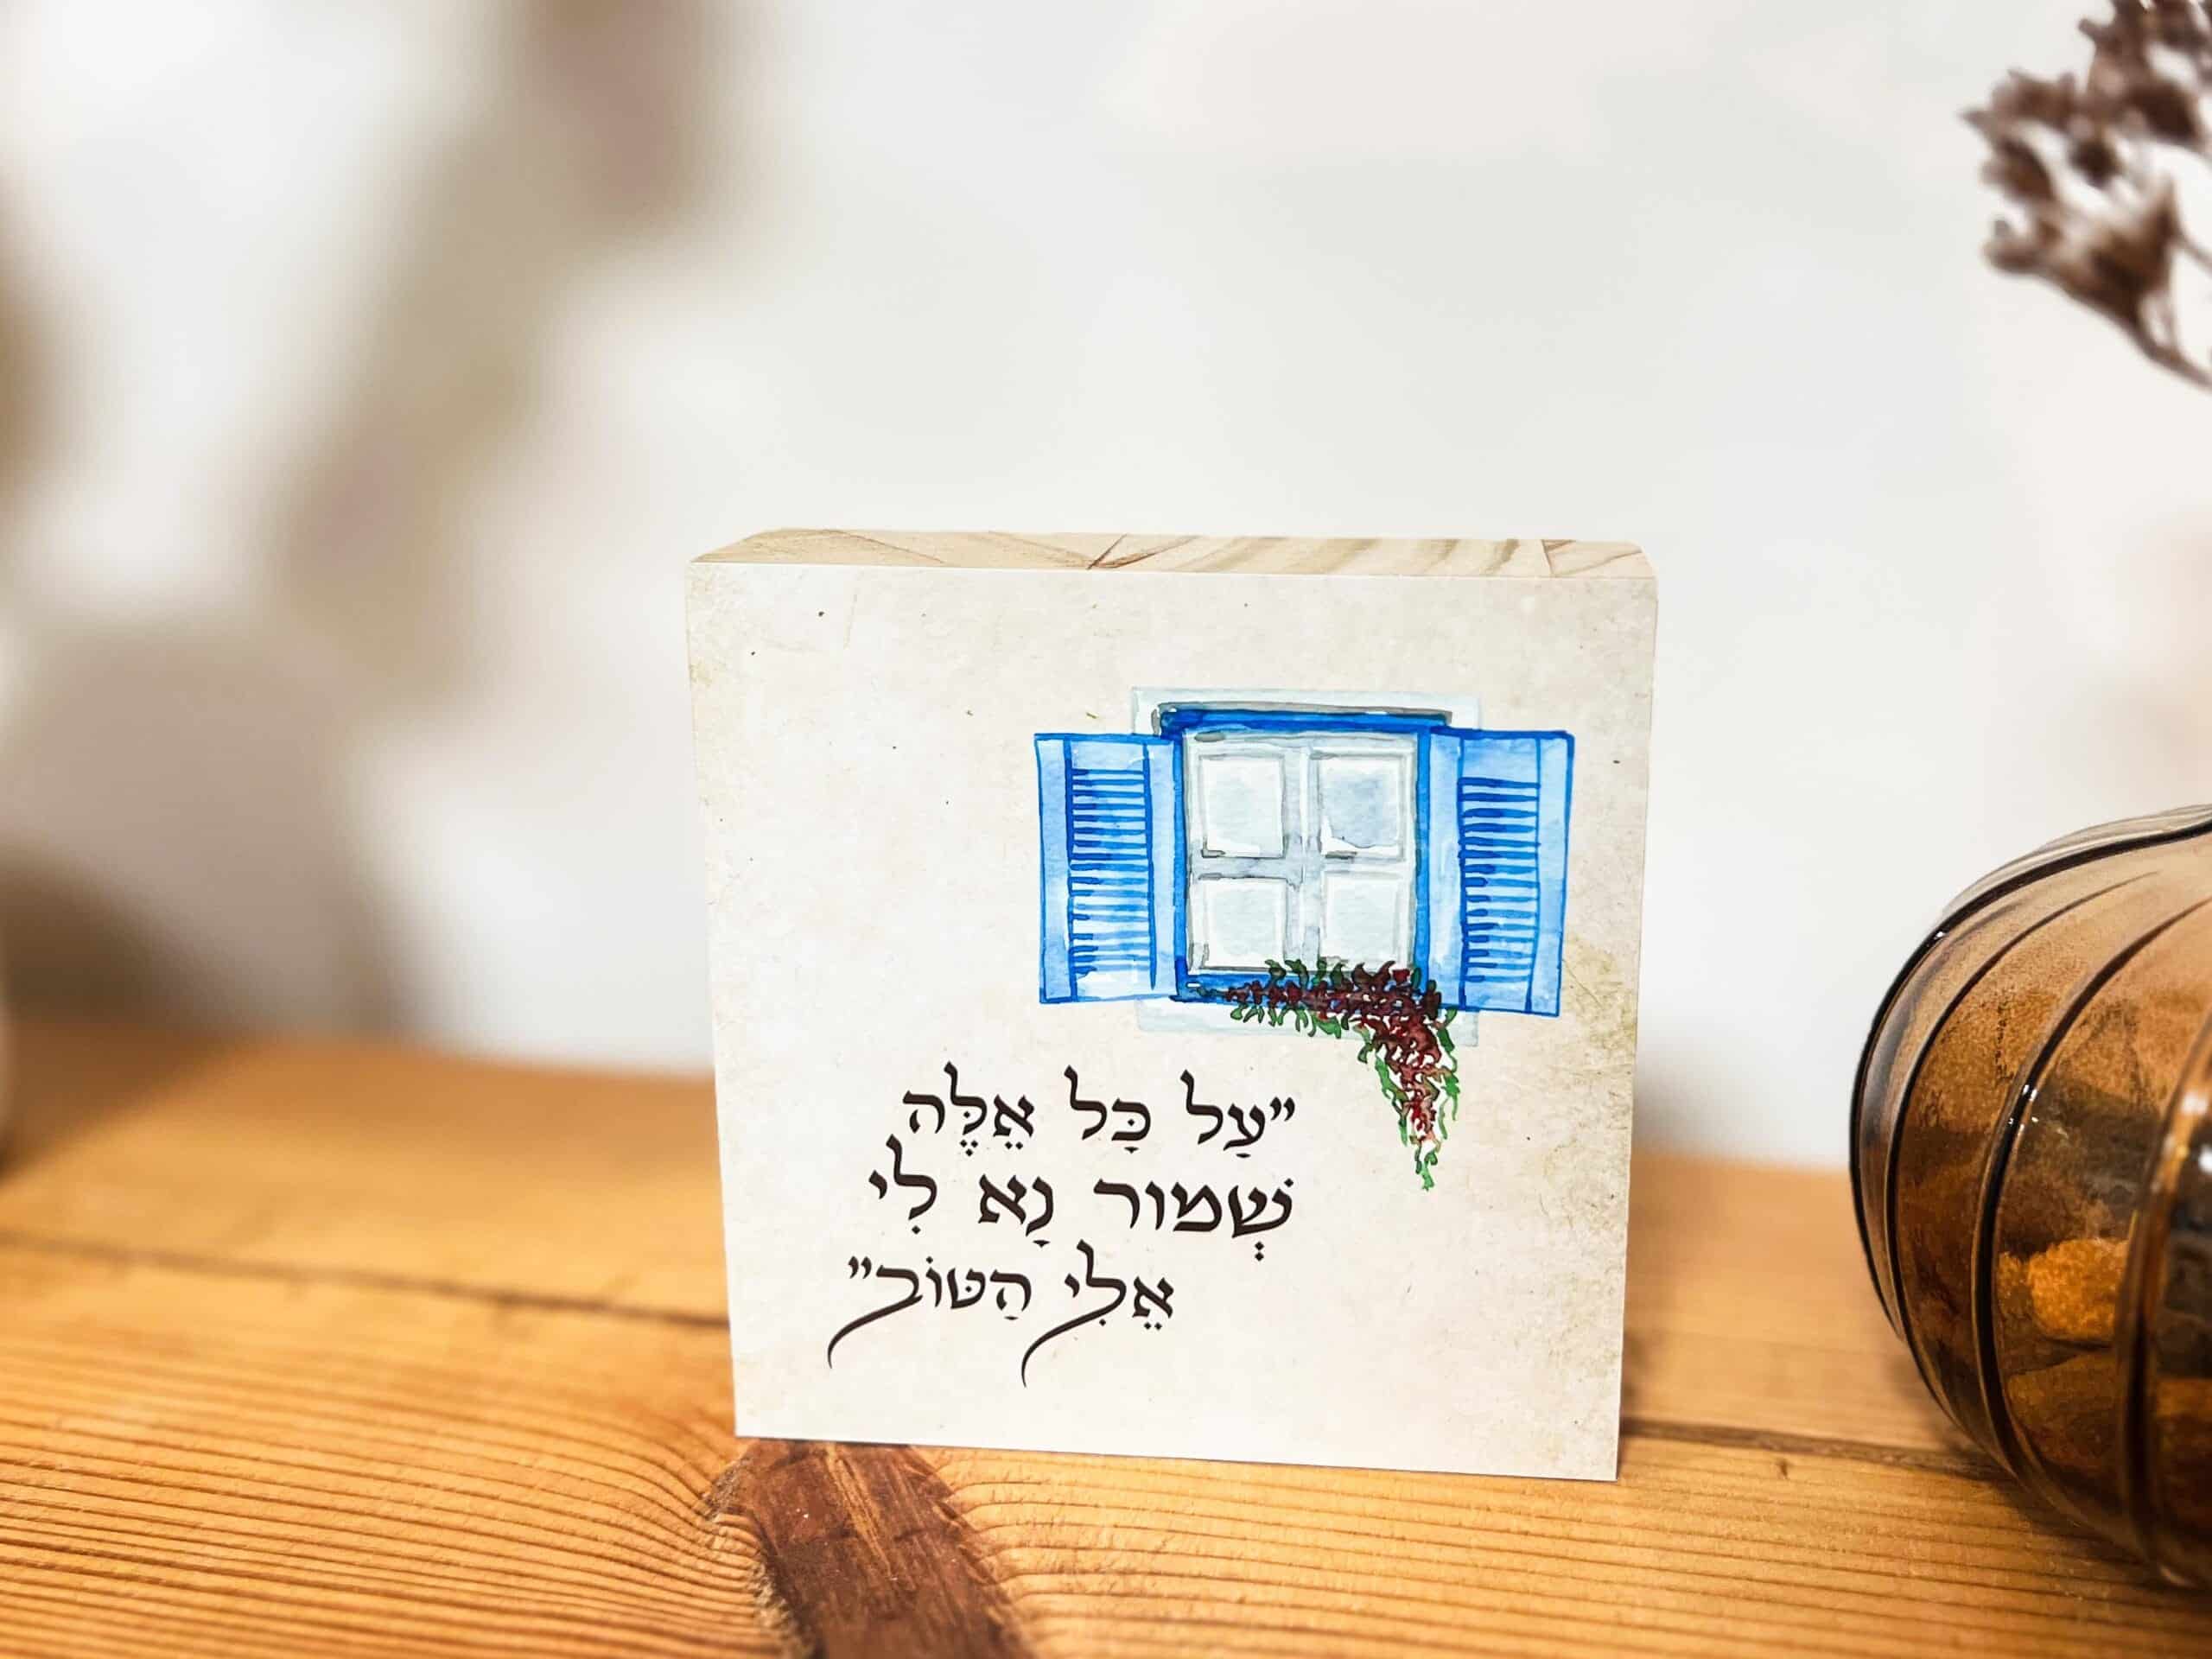 "עַל כָּל אֵלֶּה
שְׁמוֹר נָא לִי
אֵלִי הַטּוֹב"